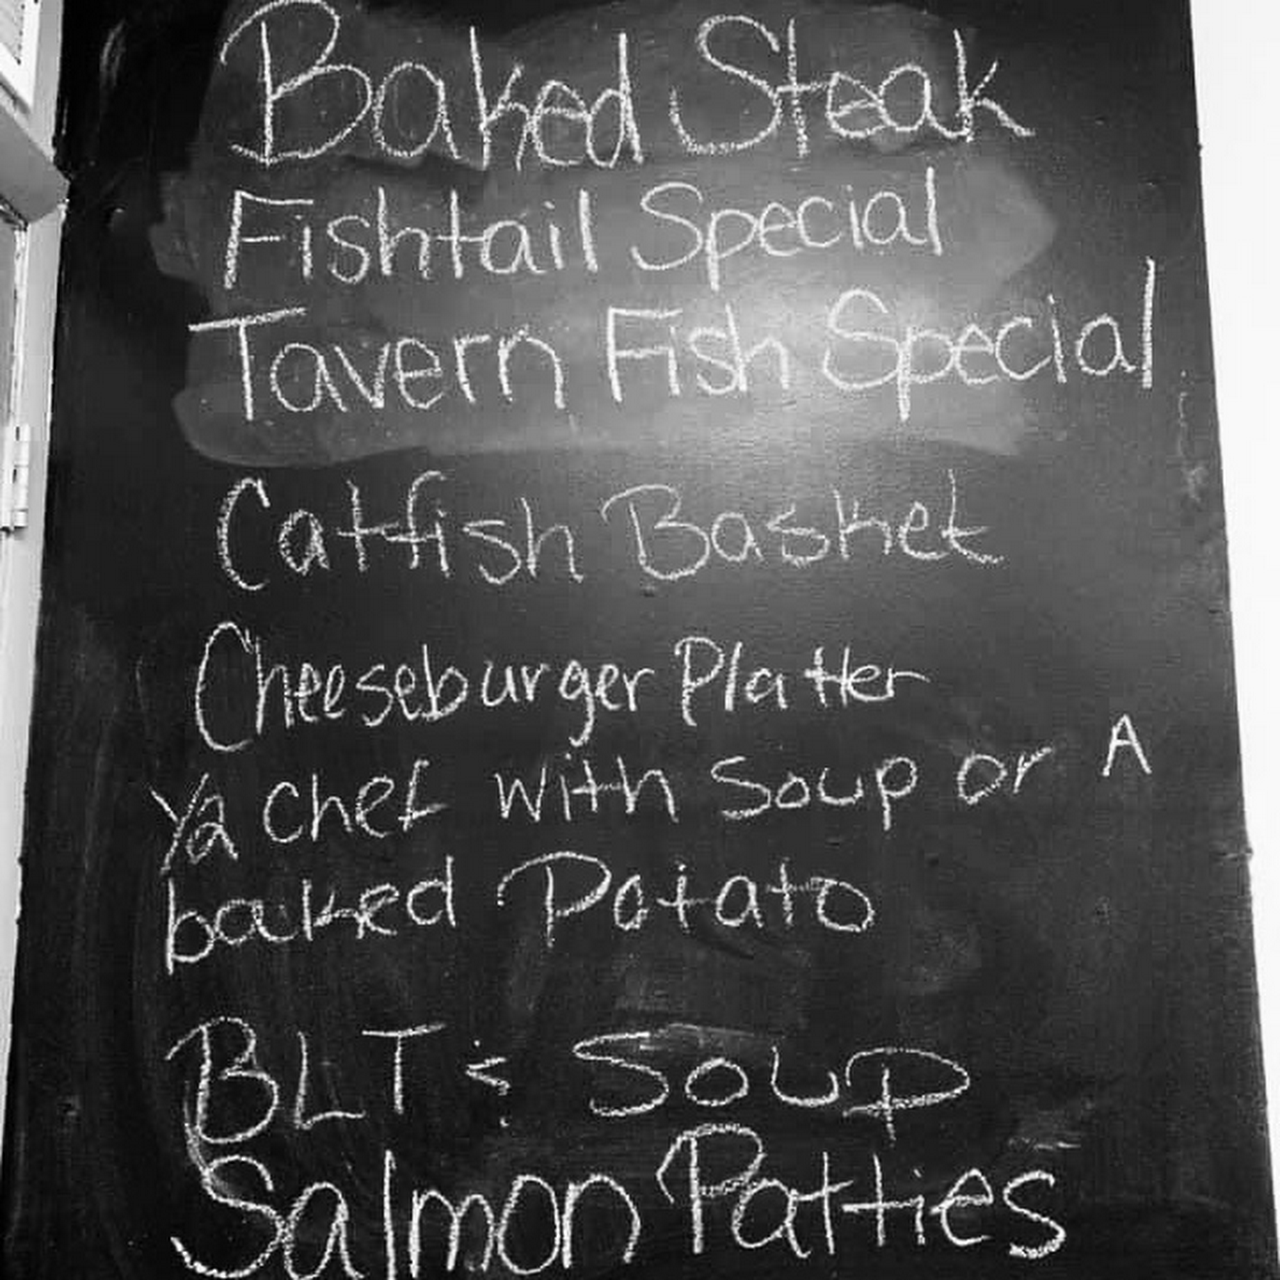 Baked Steak
Fishtail Special
Tavern Fish Special
Catfish Basket
Cheeseburger Platter
½ chef with Soup or A
baked Potato
BLT & Soup
Salmon Patties